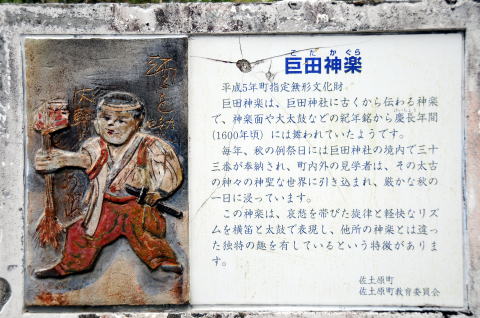 こだかぐら
巨田神楽
平成5年町指定無形文化財
巨田神楽は、巨田神社に古くから伝わる神楽
で、神楽面や大太鼓などの紀年銘から慶長年間
(1600年頃)には舞われていたようです。
毎年、秋の例祭日には巨田神社の境内で三十
三番が奉納され、町内外の見学者は、その太古
の神々の神聖な世界に引き込まれ、厳かな秋の
一日に浸っています。
この神楽は、哀愁を帯びた旋律と軽快なリズ
ムを横笛と太鼓で表現し、他所の神楽とは違っ
た独特の趣を有しているという特徴がありま
す。
佐土原町
佐土原町教育委員会